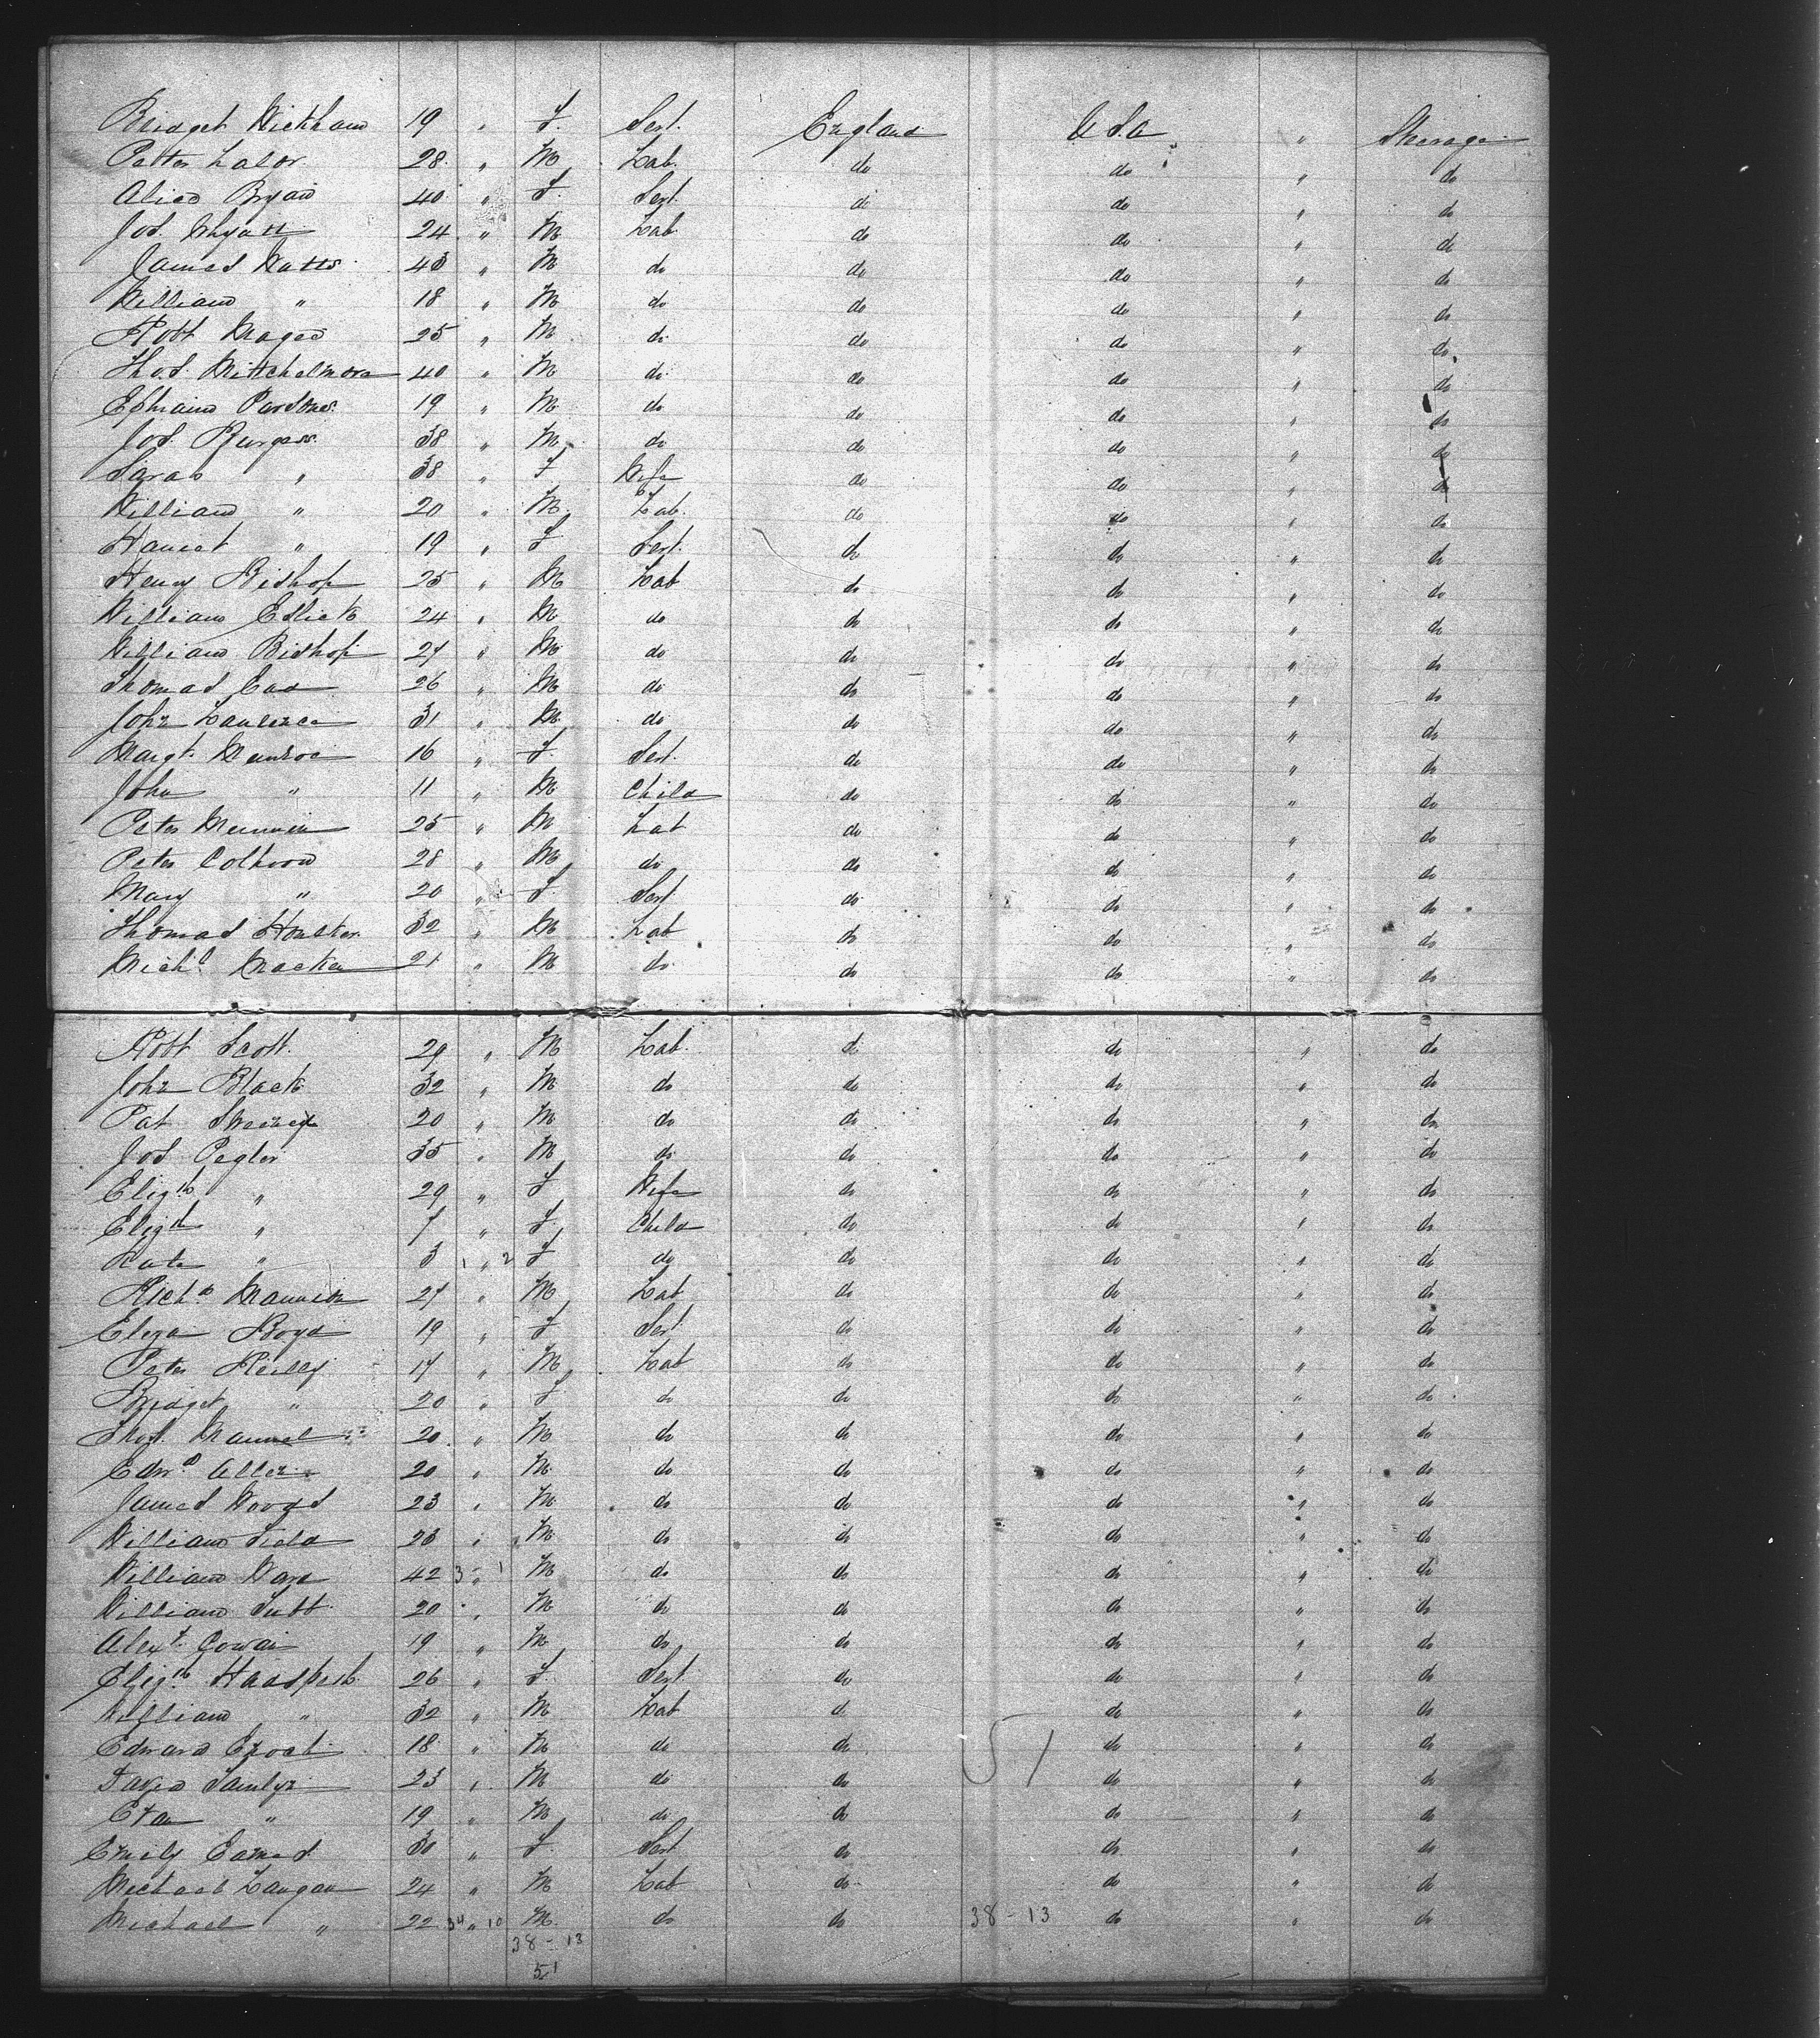 Bridget Wickham 19 " F. Sert. England U S a " Steerage
Petter Lalor 28 " M Lab. do do " do
Alice Bryan 40 " F. Sert. do do " do
Jos. Whyatt 24 " M Lab do do " do
James Watts 43 " M do do do " do
William " 18 " M do do do " do
Robt Magee 25 " M do do do " do
Thos. Mitchelmore 40 " M do do do " do
Ephraim Parsons 19 " M do do do " do
Jos. Burgess 38 " M do do do " do
Sarah " 38 " F Wife do do " do
William " 20 " M. Lab. do do " do
" 19 " F Sert. do do " do
Henry Bishop 25 " M Lab do do " do
William Edlick 24 " M do do do " do
William Bishop 27 " M do do do " do
Thomas Cox 26 " M do do do " do
John Laurence 31 " M do do do " do
Margt. Munroe 16 " F. Sert. do do " do
John " 11 " M Child do do " do
Peter 25 " M Lab do do " do
Peter Colhoon 28 " M do do do " do
Mary " 20 " F. Sert do do " do
Thomas Houlker 32 " M Lab do do " do
Michl. Macken 21 " M do do do " do
Robt Scott. 29 " M Lab. do do " do
John Black 32 " M do do do " do
Pat Sweeney 20 " M do do do " do
Jos Pegler 35 " M do do do " do
Elizth " 29 " F Wife do do " do
Elizth " 7 " F. Child do do " do
Kate " 3 1 " 2 F do do do " do
Richd. Mannion 27 " M Lab do do " do
Eliza Boyd 19 " F Sert do do " do
Peter Reilly 17 " M Lab do do " do
Bridget " 20 " F do do do " do
Thos. Mannel 20 " M do do do " do
Edwd Allen 20 " M. do do do " do
James Woods 23 " M do do do " do
William Field 23 " M do do do " do
William Ware 42 3 " 1 M do do do " do
William Tubb 20 " M do do do " do
Alexr. Cowan 19 " M do do do " do
Elizth 26 " F. Sert do do " do
William " 32 " M Lab do do " do
Edward 18 " M do do 51 do " do
David 23 " M do do do " do
" 19 " M do do do " do
Emily Eames 30 " F. Sert do do " do
Michael Langan 24 " M Lab do do " do
Michael " 22 34 " 10 M. do do 38 - 13 do " do
38 - 13
51